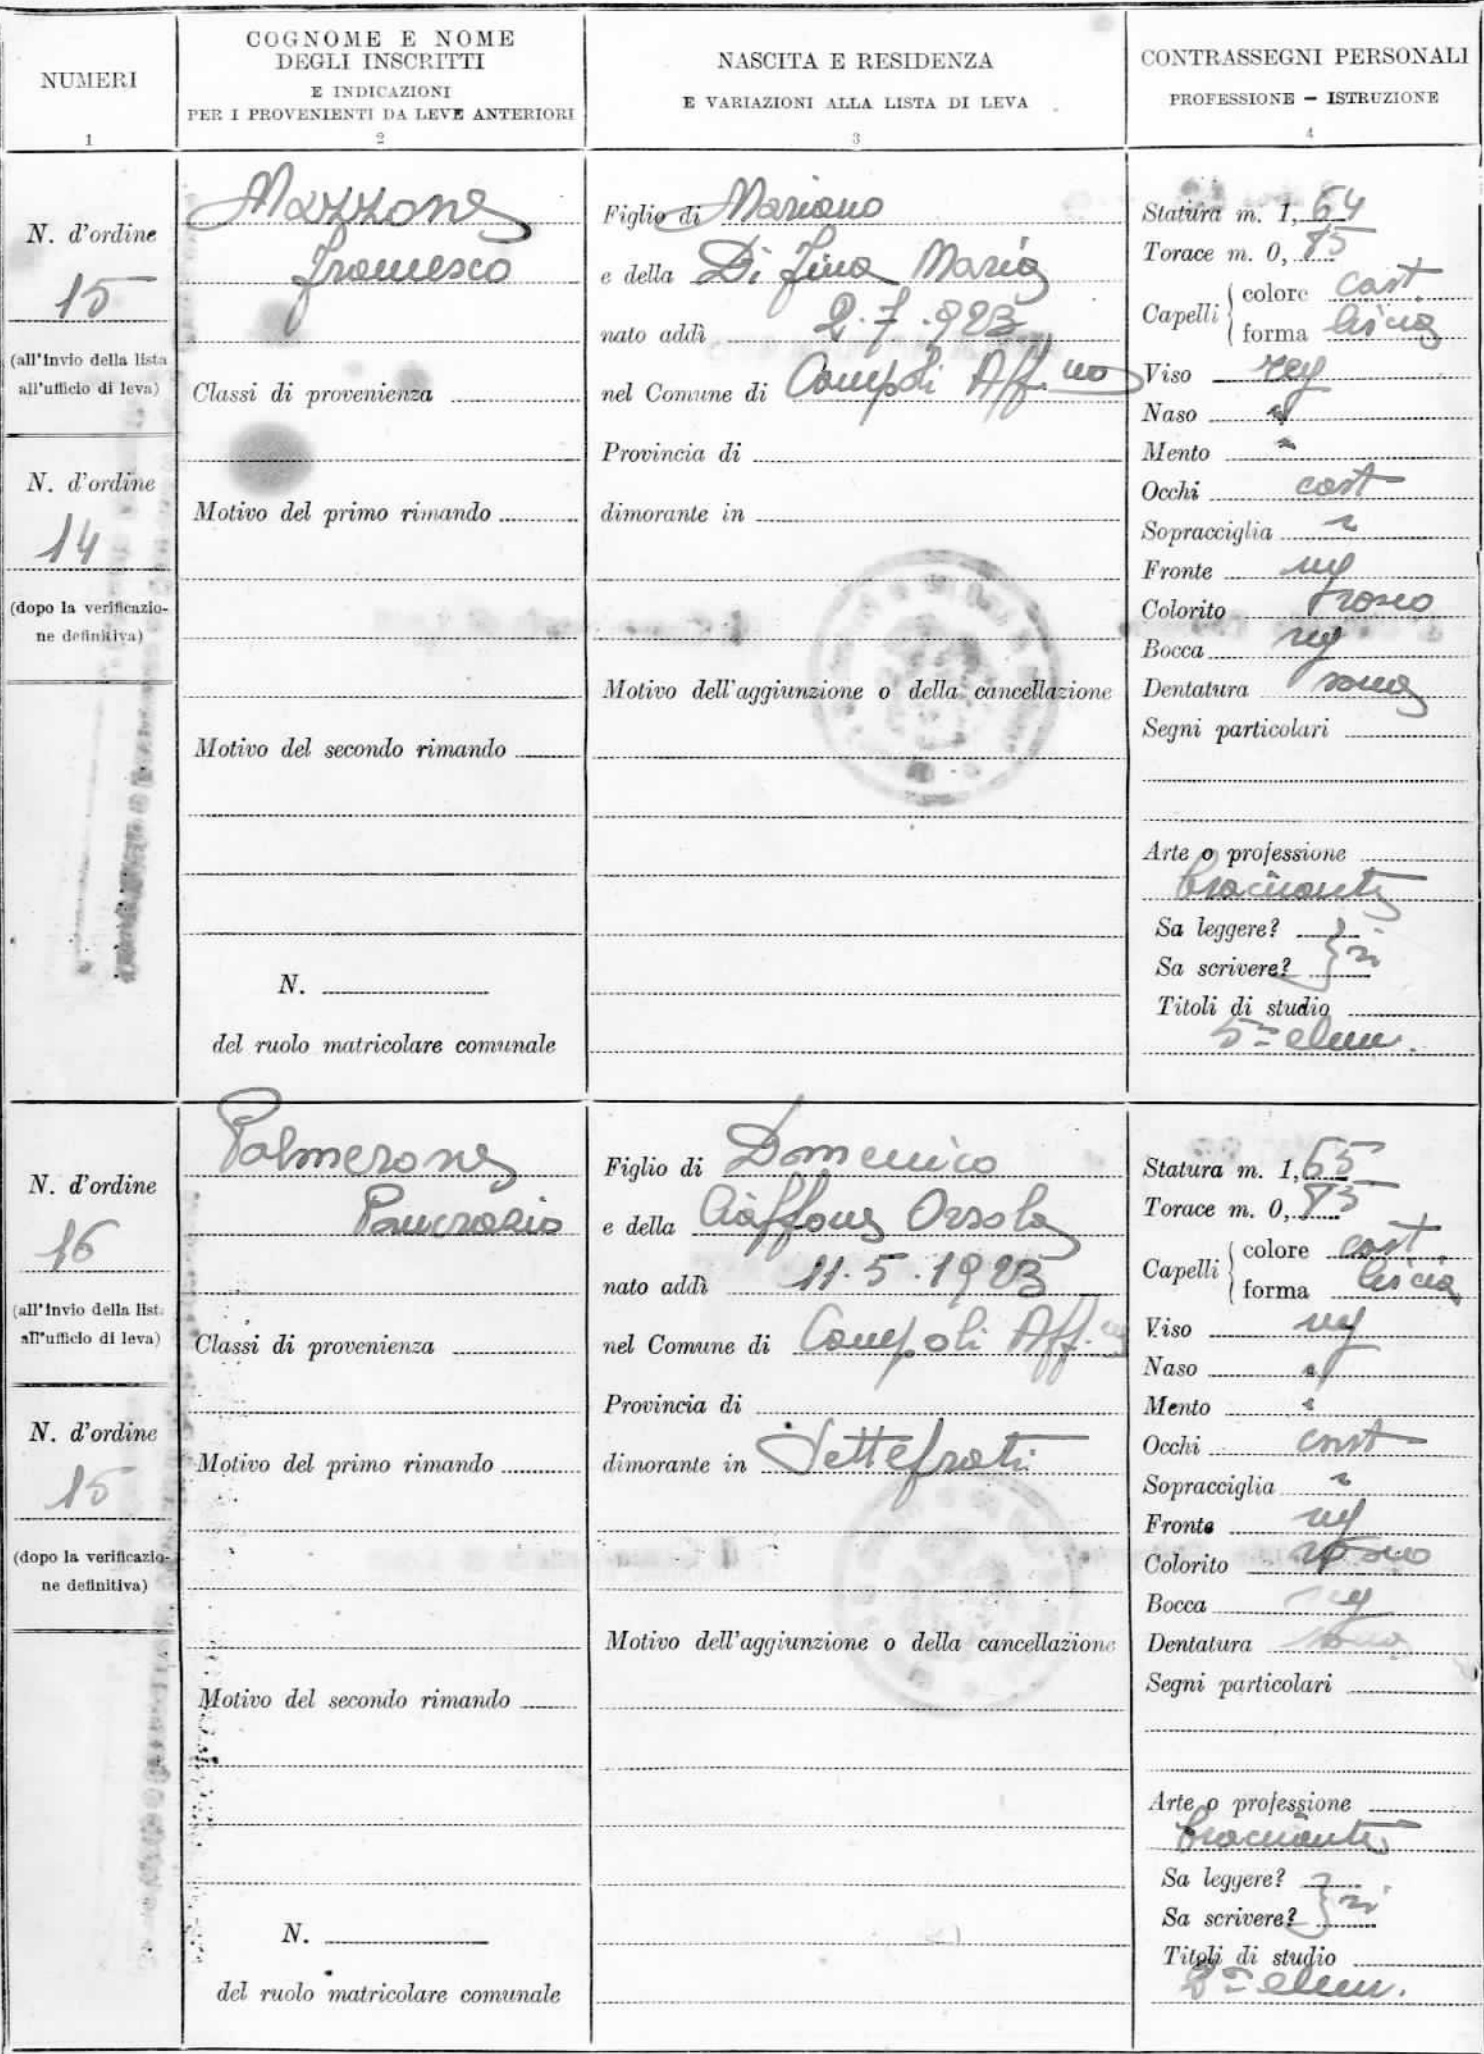 NUMERI
1
COGNOME E NOME
DEGLI INSCRITTI
E INDICAZIONI
PER I PROVENIENTI DA LEVE ANTERIORI
2
NASCITA E RESIDENZA
E VARIAZIONI ALLA LISTA DI LEVA
3
CONTRASSEGNI PERSONALI
PROFESSIONE - ISTRUZIONE
4
N. d'ordine
15
(all'invio della lista
all'ufficio di leva)
N. d'ordine
14
(dopo la verificazio-
ne definitiva)
Mazzone
Francesco
Classi di provenienza
Motivo del primo rimando
Motivo del secondo rimando
N.
del ruolo matricolare comunale
Figlio di Mariano
e della Di Fina Maria
nato addì 2.7.923
nel Comune di Campoli App.no
Provincia di
dimorante in
Motivo dell'aggiunzione o della cancellazione
Statura m. 1,64
Torace m. 0,85
Capelli colore cast.
forma liscia
Viso reg
Naso "
Mento "
Occhi cast
Sopracciglia "
Fronte reg
Colorito roseo
Bocca reg
Dentatura sana
Segni particolari
Arte o professione
bracciante
Sa leggere?
Sa scrivere? } si
Titoli di studio
5ª elem.
N. d'ordine
16
(all'invio della lista
all'ufficio di leva)
N. d'ordine
15
(dopo la verificazio-
ne definitiva)
Palmerone
Pancrazio
Classi di provenienza
Motivo del primo rimando
Motivo del secondo rimando
N.
del ruolo matricolare comunale
Figlio di Domenico
e della Ciaffone Orsola
nato addì 11.5.1923
nel Comune di Campoli App.no
Provincia di
dimorante in Settefrati
Motivo dell'aggiunzione o della cancellazione
Statura m. 1,65
Torace m. 0,85
Capelli colore cast.
forma liscia
Viso reg
Naso "
Mento "
Occhi cast
Sopracciglia "
Fronte reg
Colorito roseo
Bocca reg
Dentatura sana
Segni particolari
Arte o professione
bracciante
Sa leggere?
Sa scrivere? } si
Titoli di studio
3ª elem.